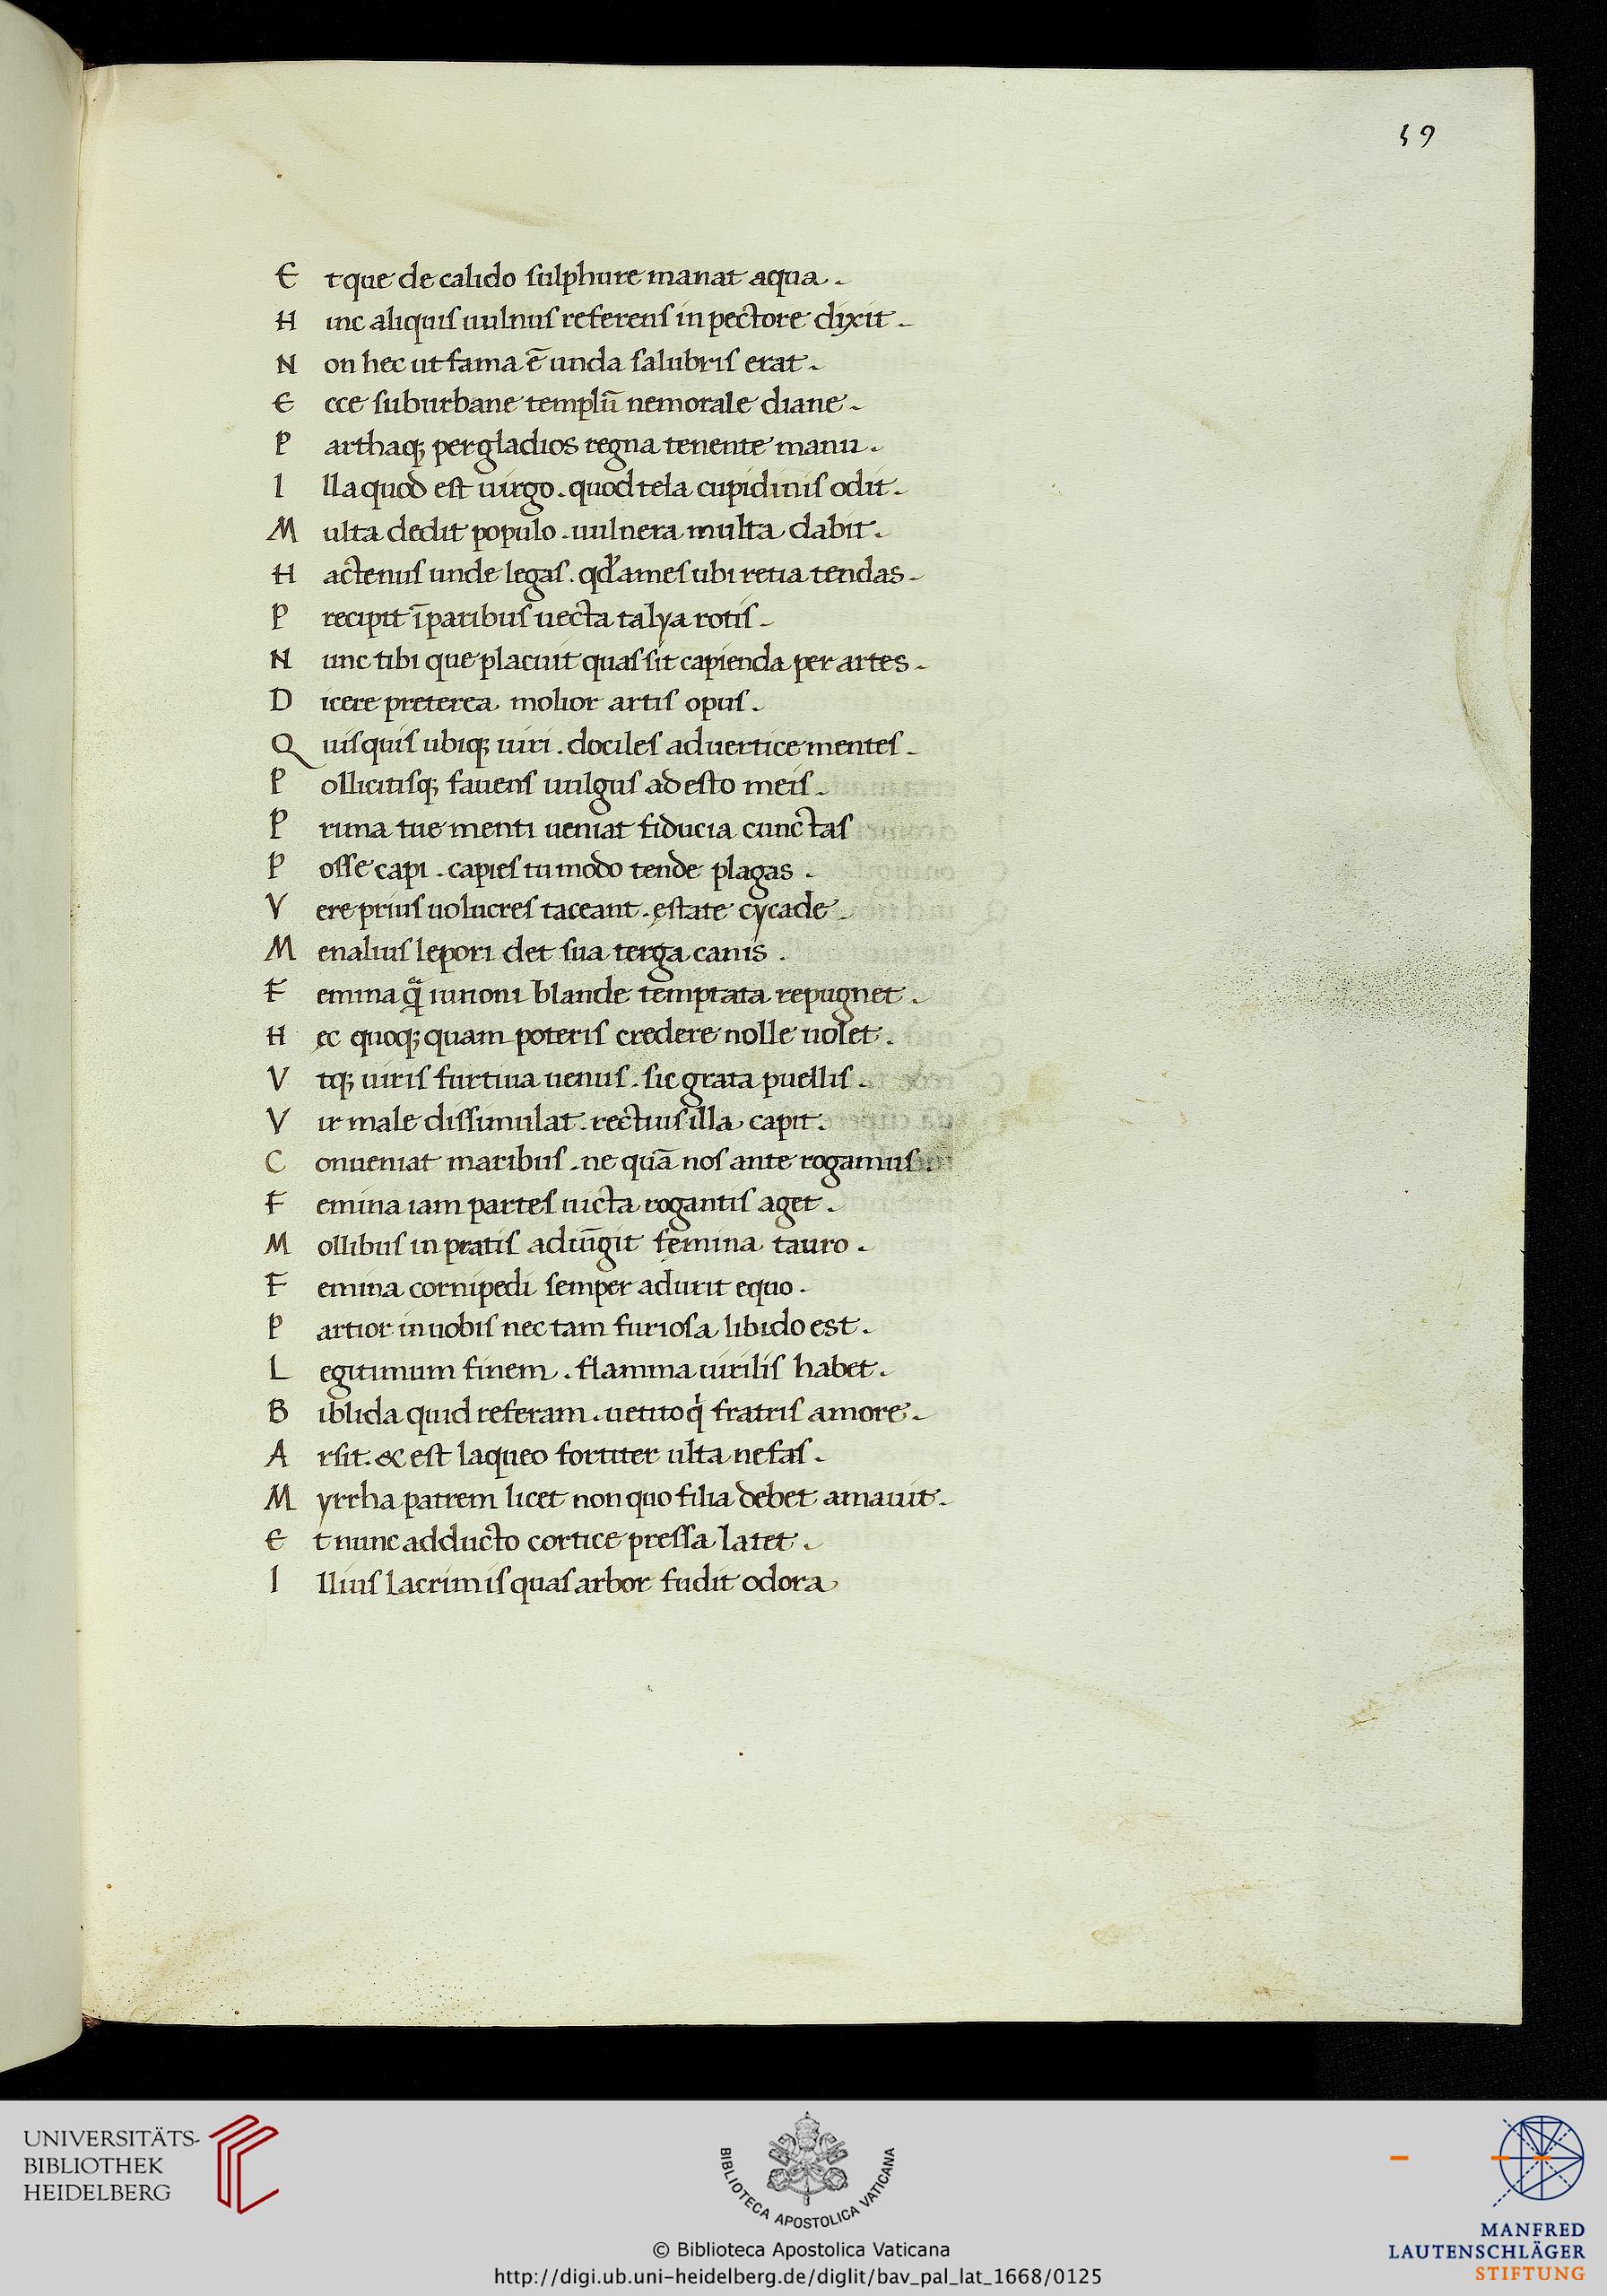 59
Et que de calido sulphure manat aqua.
Hinc aliquis uulnus referens in pectore dixit.
Non hec ut fama ē unda salubris erat.
Ecce suburbane templū nemorale diane.
Parthaq; per gladios regna tenente manu.
Illa quod est uirgo. quod tela cupidinis odit.
Multa dedit populo. uulnera multa dabit.
Hactenus unde legas. qđ ames ubi retia tendas.
Precipit īparibus uecta talya rotis.
Nunc tibi que placuit quas sit capienda per artes.
Dicere preterea molior artis opus.
Quisquis ubiq; uiri. dociles aduertice mentes.
Pollicitisq; fauens uulgus adesto meis.
Prima tue menti ueniat fiducia cunctas
Posse capi. capies tu modo tende plagas.
Vere prius uolucres taceant. ęstate cycade.
Menalius lepori det sua terga canis.
Femina q̃ iunoni blande temptata repugnet.
Hęc quoq; quam poteris credere nolle uolet.
Vtq; uiris furtiua uenus. sic grata puellis.
Vir male dissimulat. rectius illa capit.
Conueniat maribus. ne quā nos ante rogamus.
Femina iam partes uicta rogantis aget.
Mollibus in pratis adiūgit fęmina tauro.
Femina cornipedi semper adurit equo.
Partior in nobis nec tam furiosa libido est.
Legitimum finem. flamma uirilis habet.
Biblida quid referam. uetito q̇ fratris amore.
Arsit. & est laqueo fortiter ulta nefas.
Myrrha patrem licet non quo filia debet amauit.
Et nunc adducto cortice pressa latet.
Illius lacrimis quas arbor fudit odora
UNIVERSITÄTS-
BIBLIOTHEK
HEIDELBERG
BIBLIOTECA APOSTOLICA VATICANA
© Biblioteca Apostolica Vaticana
http://digi.ub.uni-heidelberg.de/diglit/bav_pal_lat_1668/0125
MANFRED
LAUTENSCHLÄGER
STIFTUNG